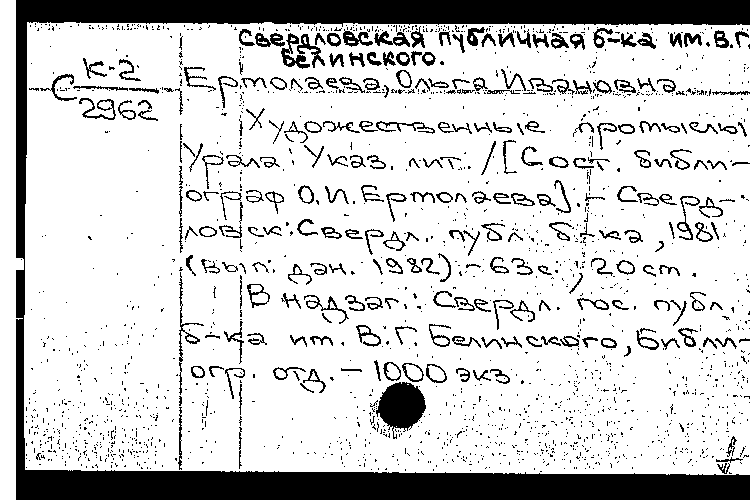 Свердловская публичная б-ка им. В.Г.
Белинского.
С К-2
2962
Ермолаева, Ольга Ивановна
Художественные промыслы
Урала: Указ. лит. / [Сост. библи-
ограф О.И. Ермолаева]. - Сверд-
ловск: Свердл. публ. б-ка, 1981
(вып. дан. 1982). - 63 с.; 20 см.
В надзаг.: Свердл. гос. публ.
б-ка им. В.Г. Белинского, Библи-
огр. отд. - 1000 экз.